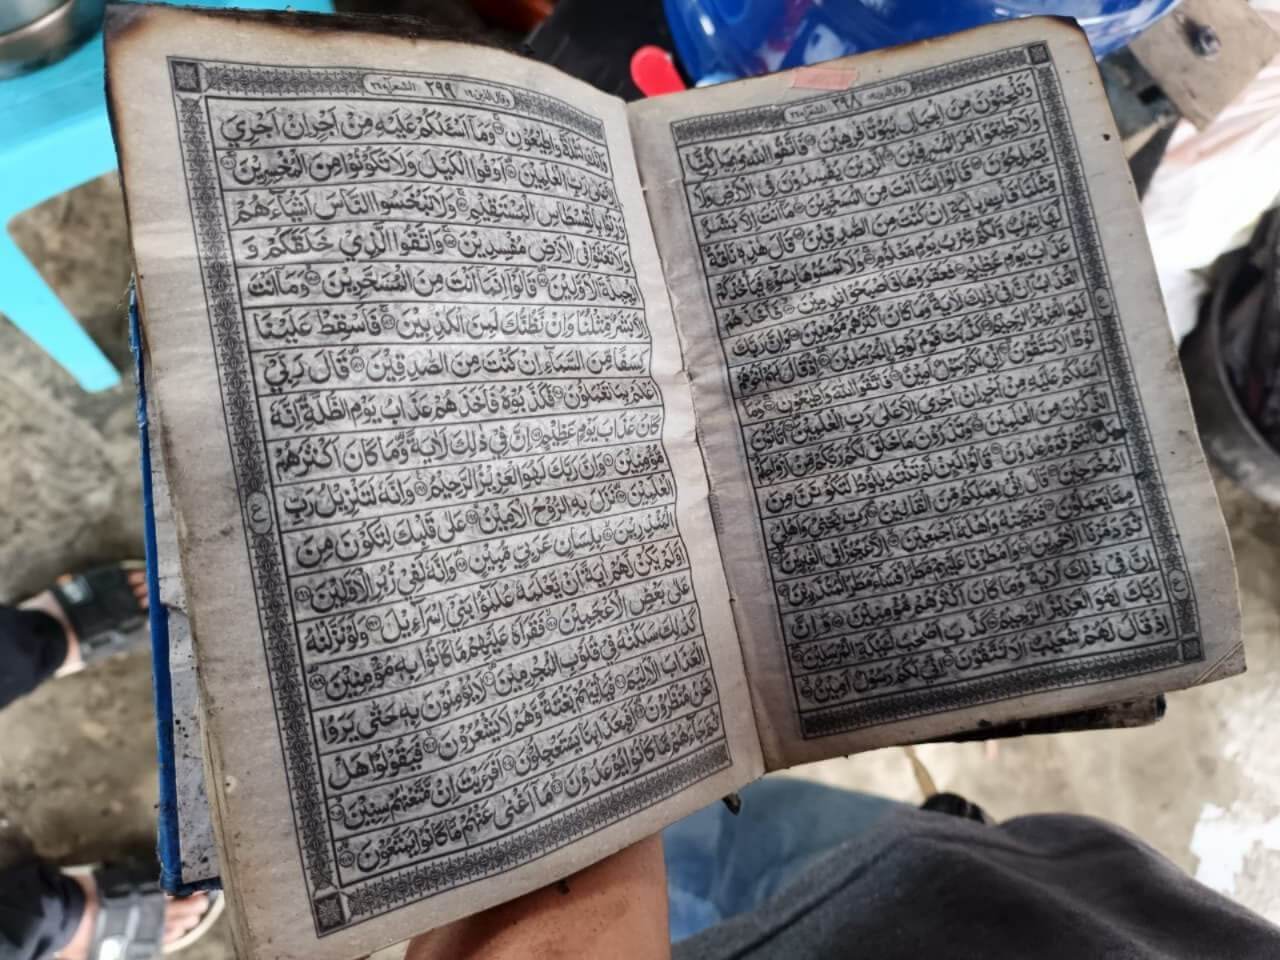 وقال الذين ١٩ ٢٩٨ الشعرآء ٢٦
وَتَنْحِتُوْنَ مِنَ الْجِبَالِ بُيُوْتًا فٰرِهِيْنَ فَاتَّقُوا اللّٰهَ وَ
وَلَا تُطِيْعُوْٓا اَمْرَ الْمُسْرِفِيْنَ الَّذِيْنَ يُفْسِدُوْنَ فِى الْاَرْضِ وَلَا
يُصْلِحُوْنَ قَالُوْٓا اِنَّمَآ اَنْتَ مِنَ الْمُسَحَّرِيْنَ مَآ اَنْتَ اِلَّا بَشَرٌ
مِّثْلُنَا فَاْتِ بِاٰيَةٍ اِنْ كُنْتَ مِنَ الصّٰدِقِيْنَ قَالَ هٰذِهٖ نَاقَةٌ
لَّهَا شِرْبٌ وَّلَكُمْ شِرْبُ يَوْمٍ مَّعْلُوْمٍ وَلَا تَمَسُّوْهَا بِسُوْٓءٍ فَيَاْخُذَكُمْ
عَذَابُ يَوْمٍ عَظِيْمٍ فَعَقَرُوْهَا فَاَصْبَحُوْا نٰدِمِيْنَ فَاَخَذَهُمُ
الْعَذَابُ اِنَّ فِيْ ذٰلِكَ لَاٰيَةً وَمَا كَانَ اَكْثَرُهُمْ مُّؤْمِنِيْنَ وَاِنَّ رَبَّكَ
لَهُوَ الْعَزِيْزُ الرَّحِيْمُ كَذَّبَتْ قَوْمُ لُوْطِ الْمُرْسَلِيْنَ اِذْ قَالَ لَهُمْ اَخُوْهُمْ
لُوْطٌ اَلَا تَتَّقُوْنَ اِنِّيْ لَكُمْ رَسُوْلٌ اَمِيْنٌ فَاتَّقُوا اللّٰهَ وَاَطِيْعُوْنِ وَمَآ
اَسْئَلُكُمْ عَلَيْهِ مِنْ اَجْرٍ اِنْ اَجْرِيَ اِلَّا عَلٰى رَبِّ الْعٰلَمِيْنَ اَتَاْتُوْنَ
الذُّكْرَانَ مِنَ الْعٰلَمِيْنَ وَتَذَرُوْنَ مَا خَلَقَ لَكُمْ رَبُّكُمْ مِّنْ اَزْوَاجِكُمْ
بَلْ اَنْتُمْ قَوْمٌ عٰدُوْنَ قَالُوْا لَئِنْ لَّمْ تَنْتَهِ يٰلُوْطُ لَتَكُوْنَنَّ مِنَ
الْمُخْرَجِيْنَ قَالَ اِنِّيْ لِعَمَلِكُمْ مِّنَ الْقَالِيْنَ رَبِّ نَجِّنِيْ وَاَهْلِيْ
مِمَّا يَعْمَلُوْنَ فَنَجَّيْنٰهُ وَاَهْلَهٗٓ اَجْمَعِيْنَ اِلَّا عَجُوْزًا فِى الْغٰبِرِيْنَ
ثُمَّ دَمَّرْنَا الْاٰخَرِيْنَ وَاَمْطَرْنَا عَلَيْهِمْ مَّطَرًا فَسَآءَ مَطَرُ الْمُنْذَرِيْنَ
اِنَّ فِيْ ذٰلِكَ لَاٰيَةً وَمَا كَانَ اَكْثَرُهُمْ مُّؤْمِنِيْنَ وَاِنَّ
رَبَّكَ لَهُوَ الْعَزِيْزُ الرَّحِيْمُ كَذَّبَ اَصْحٰبُ لْئَيْكَةِ الْمُرْسَلِيْنَ
اِذْ قَالَ لَهُمْ شُعَيْبٌ اَلَا تَتَّقُوْنَ اِنِّيْ لَكُمْ رَسُوْلٌ اَمِيْنٌ
وقال الذين ١٩ ٢٩٩ الشعرآء ٢٦
فَاتَّقُوا اللّٰهَ وَاَطِيْعُوْنِ وَمَآ اَسْئَلُكُمْ عَلَيْهِ مِنْ اَجْرٍ اِنْ اَجْرِيَ
اِلَّا عَلٰى رَبِّ الْعٰلَمِيْنَ اَوْفُوا الْكَيْلَ وَلَا تَكُوْنُوْا مِنَ الْمُخْسِرِيْنَ
وَزِنُوْا بِالْقِسْطَاسِ الْمُسْتَقِيْمِ وَلَا تَبْخَسُوا النَّاسَ اَشْيَآءَهُمْ
وَلَا تَعْثَوْا فِى الْاَرْضِ مُفْسِدِيْنَ وَاتَّقُوا الَّذِيْ خَلَقَكُمْ وَ
الْجِبِلَّةَ الْاَوَّلِيْنَ قَالُوْٓا اِنَّمَآ اَنْتَ مِنَ الْمُسَحَّرِيْنَ وَمَآ اَنْتَ
اِلَّا بَشَرٌ مِّثْلُنَا وَاِنْ نَّظُنُّكَ لَمِنَ الْكٰذِبِيْنَ فَاَسْقِطْ عَلَيْنَا
كِسَفًا مِّنَ السَّمَآءِ اِنْ كُنْتَ مِنَ الصّٰدِقِيْنَ قَالَ رَبِّيْٓ
اَعْلَمُ بِمَا تَعْمَلُوْنَ فَكَذَّبُوْهُ فَاَخَذَهُمْ عَذَابُ يَوْمِ الظُّلَّةِ اِنَّهٗ
كَانَ عَذَابَ يَوْمٍ عَظِيْمٍ اِنَّ فِيْ ذٰلِكَ لَاٰيَةً وَمَا كَانَ اَكْثَرُهُمْ
مُّؤْمِنِيْنَ وَاِنَّ رَبَّكَ لَهُوَ الْعَزِيْزُ الرَّحِيْمُ وَاِنَّهٗ لَتَنْزِيْلُ رَبِّ
الْعٰلَمِيْنَ نَزَلَ بِهِ الرُّوْحُ الْاَمِيْنُ عَلٰى قَلْبِكَ لِتَكُوْنَ مِنَ
الْمُنْذِرِيْنَ بِلِسَانٍ عَرَبِيٍّ مُّبِيْنٍ وَاِنَّهٗ لَفِيْ زُبُرِ الْاَوَّلِيْنَ
اَوَلَمْ يَكُنْ لَّهُمْ اٰيَةً اَنْ يَّعْلَمَهٗ عُلَمٰٓؤُا بَنِيْٓ اِسْرَآءِيْلَ وَلَوْ نَزَّلْنٰهُ
عَلٰى بَعْضِ الْاَعْجَمِيْنَ فَقَرَاَهٗ عَلَيْهِمْ مَّا كَانُوْا بِهٖ مُؤْمِنِيْنَ
كَذٰلِكَ سَلَكْنٰهُ فِيْ قُلُوْبِ الْمُجْرِمِيْنَ لَا يُؤْمِنُوْنَ بِهٖ حَتّٰى يَرَوُا
الْعَذَابَ الْاَلِيْمَ فَيَاْتِيَهُمْ بَغْتَةً وَّهُمْ لَا يَشْعُرُوْنَ فَيَقُوْلُوْا هَلْ
نَحْنُ مُنْظَرُوْنَ اَفَبِعَذَابِنَا يَسْتَعْجِلُوْنَ اَفَرَءَيْتَ اِنْ مَّتَّعْنٰهُمْ سِنِيْنَ
ثُمَّ جَآءَهُمْ مَّا كَانُوْا يُوْعَدُوْنَ مَآ اَغْنٰى عَنْهُمْ مَّا كَانُوْا يُمَتَّعُوْنَ